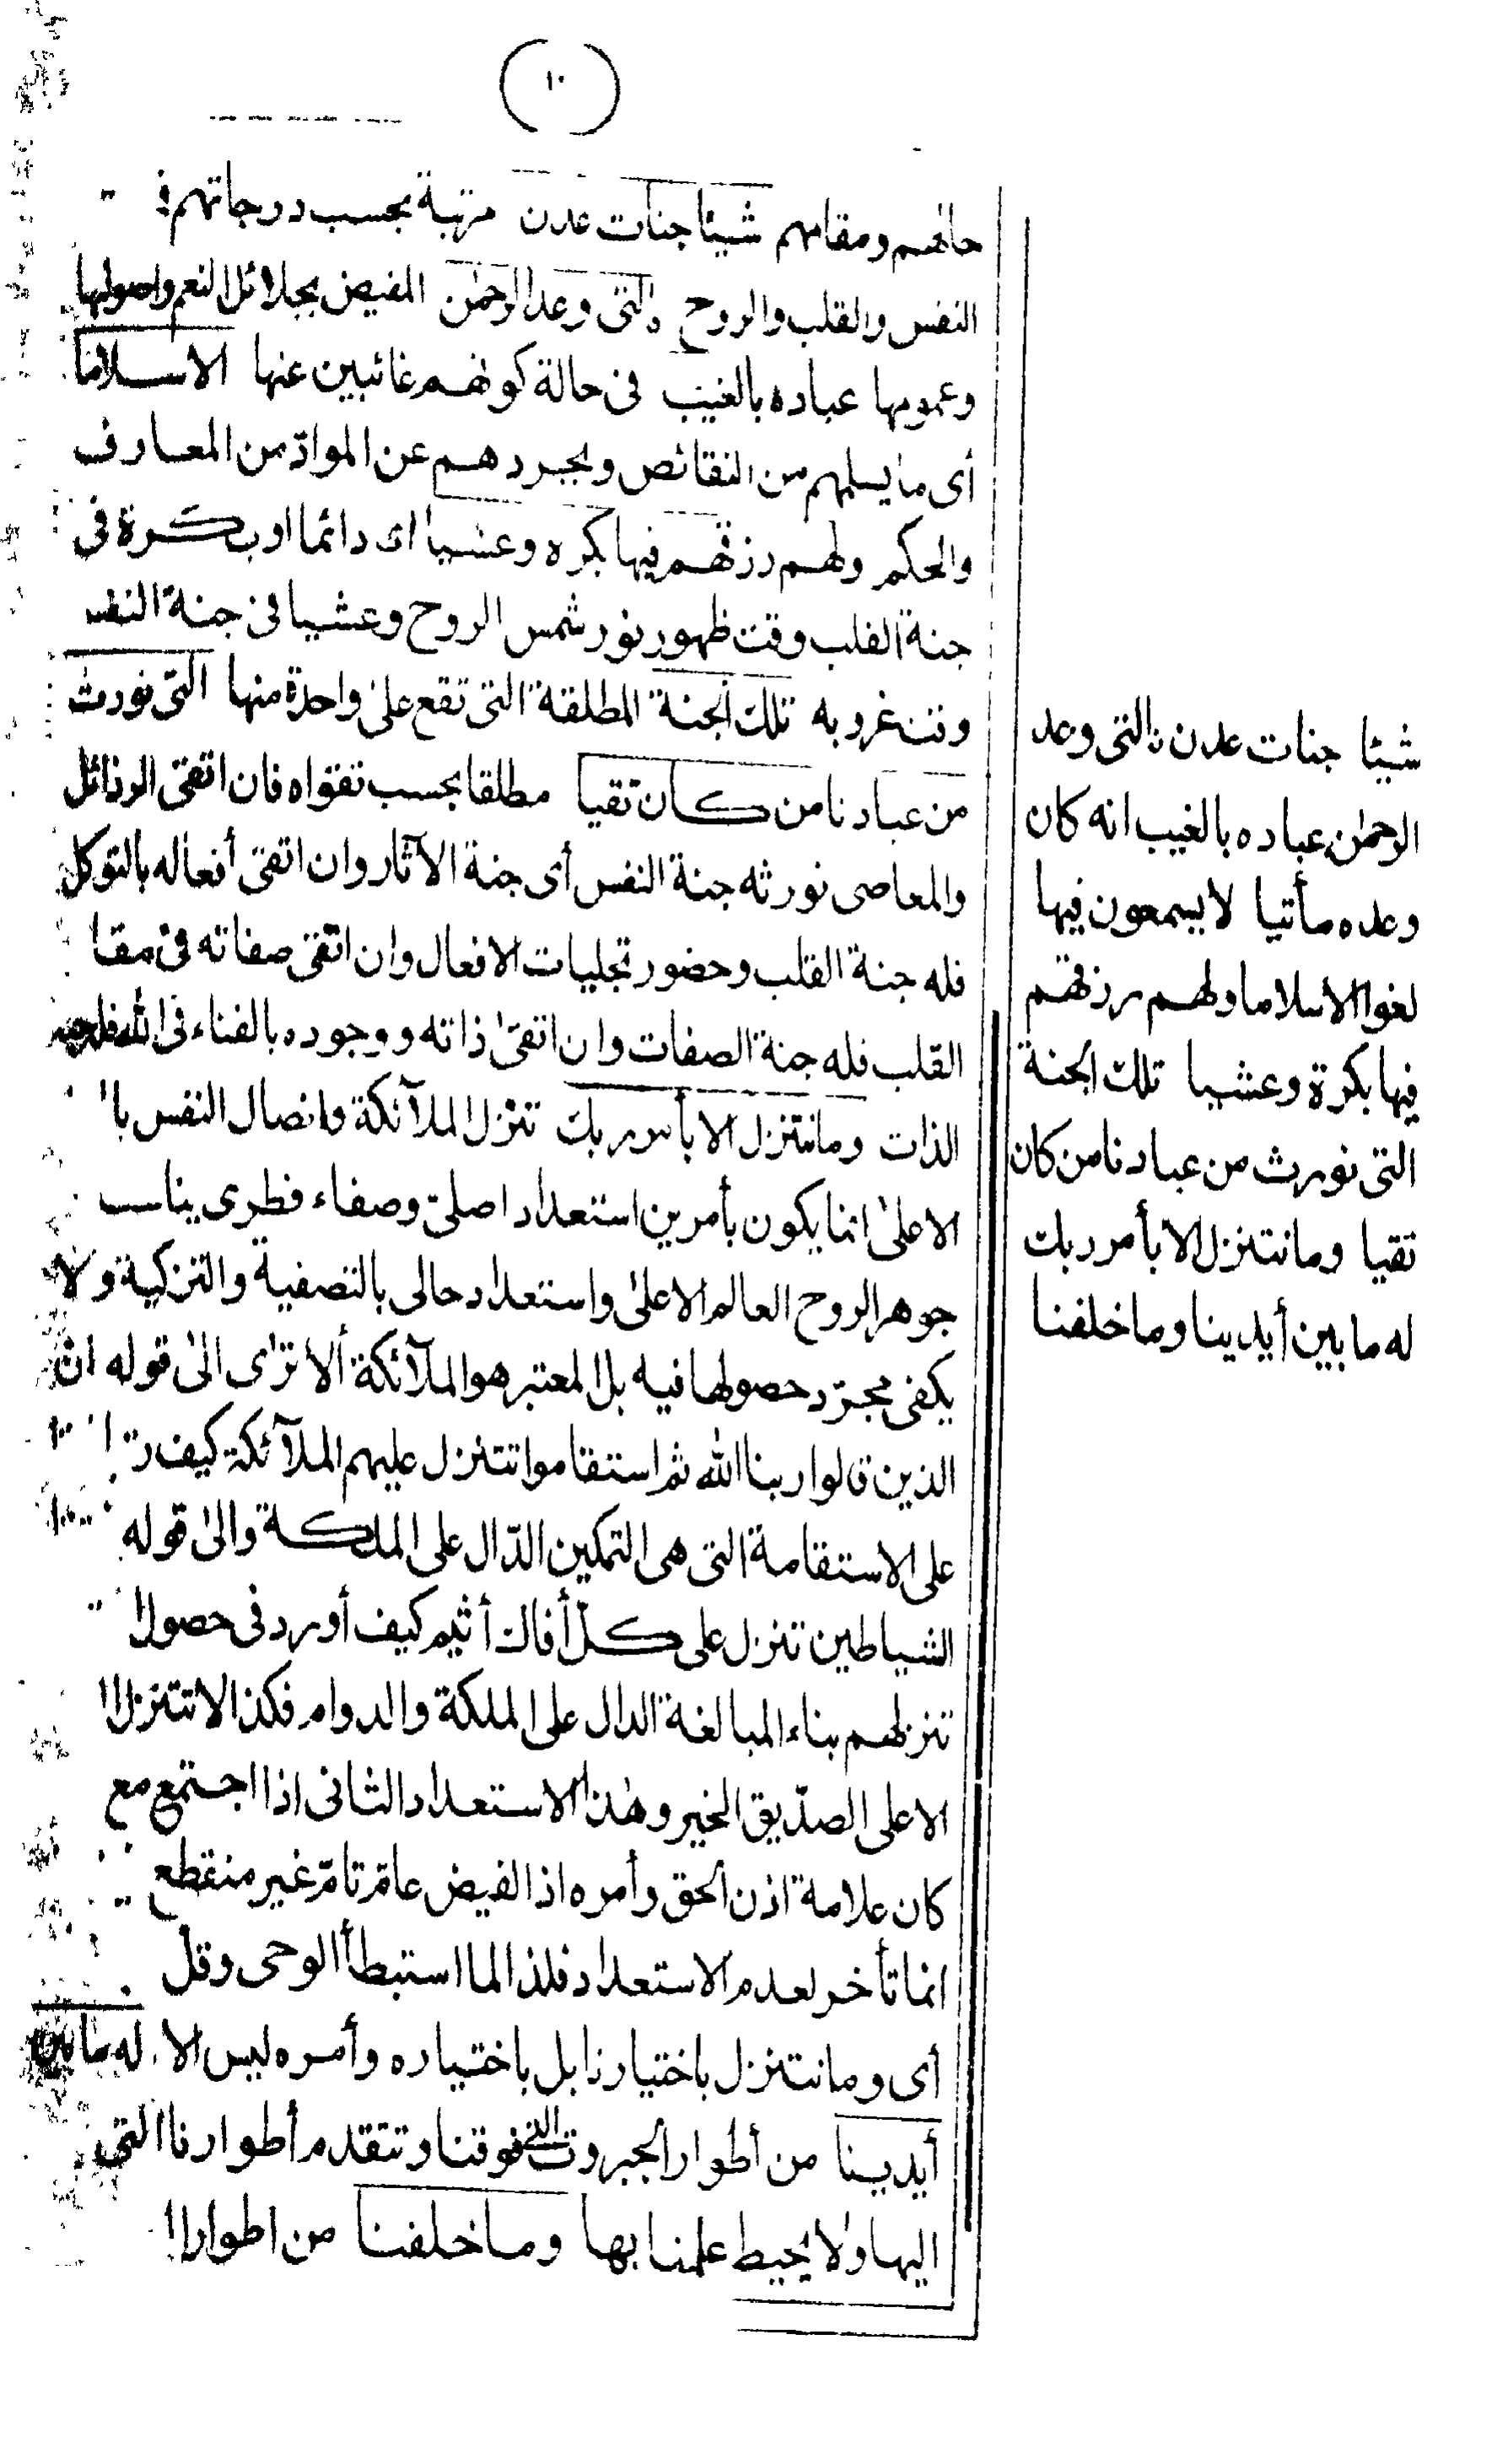 (١٠)
حالهم ومقامهم شيئا جنات عدن مرتبة بحسب درجاتهم فى
النفس والقلب والروح التى وعد الرحمٰن المفيض بجلائل النعم واصولها
وعمومها عباده بالغيب فى حالة كونهم غائبين عنها الاسلاما
أى ما يسلمهم من النقائص ويجردهم عن الموادّ من المعارف
والحكم ولهم رزقهم فيها بكره وعشيا اى دائما او بكرة فى
جنة القلب وقت ظهور نور شمس الروح وعشيا فى جنة النفس
وقت غروبه تلك الجنة المطلقة التى تقع على واحدة منها التى نورث
من عبادنا من كان تقيا مطلقا بحسب تقواه فان اتقى الرذائل
والمعاصى نورثه جنة النفس أى جنة الآثار وان اتقى أفعاله بالتوكل
فله جنة القلب وحضور تجليات الافعال وان اتقى صفاته فى مقا
القلب فله جنة الصفات وان اتقى ذاته ووجوده بالفناء فى الله فله جنة
الذات وما نتنزل الا بأمر ربك تنزل الملآئكة واتصال النفس با
الاعلىٰ انما يكون بأمرين استعداد اصلىّ وصفاء فطرى يناسب
جوهر الروح العالم الاعلىٰ واستعداد حالى بالتصفية والتزكية ولا
يكفى مجرّد حصولها فيه بل المعتبر هو الملآئكة ألا ترٰى الىٰ قوله ان
الذين قالوا ربنا الله ثم استقاموا تتنزل عليهم الملآئكة كيف
على الاستقامة التى هى التمكين الدّال على الملكة والىٰ قوله
الشياطين تنزل على كلّ أفاك أثيم كيف أورد فى حصول
تنزلهم بناء المبالغة الدال على الملكة والدوام فكذا لا تتنزل
الاعلى الصدّيق الخير وهٰذا الاستعداد الثانى اذا اجتمع مع
كان علامة اذن الحق وأمره اذ الفيض عامّ تامّ غير منقطع
انما تأخر لعدم الاستعداد فلذا لما استبطأ الوحى وقل
أى وما نتنزل باختيارنا بل باختياره وأمره ليس الا له ما بين
أيدينا من أطوار الجبروت التى فوقنا وتتقدم أطوارنا التى
اليها ولا يحيط علمنا بها وما خلفنا من اطوار
شيئا جنات عدن التى وعد
الرحمٰن عباده بالغيب انه كان
وعده مأتيا لا يسمعون فيها
لغوا الا سلاما ولهم رزقهم
فيها بكرة وعشيا تلك الجنة
التى نورث من عبادنا من كان
تقيا وما نتنزل الا بأمر ربك
له ما بين أيدينا وما خلفنا